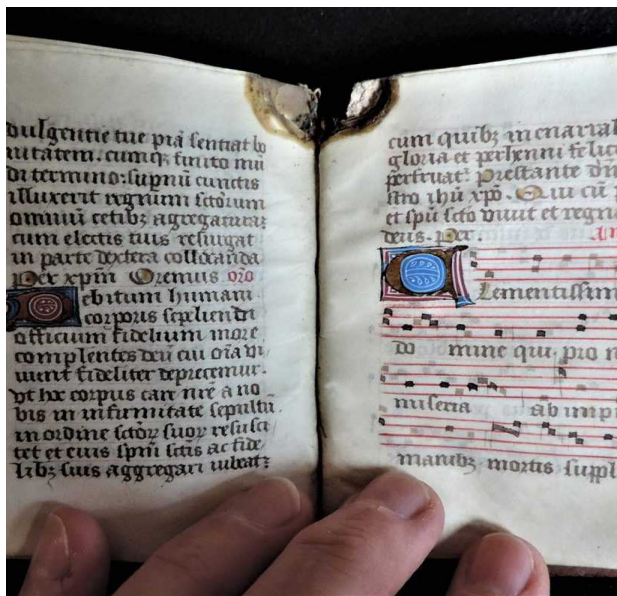 dulgentie tue pia sentiat bo
nitatem. cumq; finito mu
di termino: supnu cunctis
illuxerit regnum sctorum
omniu cetib; agregatura;
cum electis tuis resurgat
in parte dextera collocanda
Per xpm Oremus oro
Debitum humani
corporis sepeliendi
officium fidelium more
complentes deu cui oia vi
uunt fideliter deprecemur.
vt hoc corpus care nre a no
bis in infirmitate sepultu
in ordine sctoꝝ suoꝝ resusci
tet et eius spm sctis ac fide
lib; suis aggregari iubeat;
cum quib; inenarrab
gloria et perhenni felici
perfruat. Prestante dn
stro ihu xpo. Qui cu
et spu scto viuit et regna
deus. Per.
Clementissim
do mine qui pro n
miseria ab impi
manib; mortis suppl